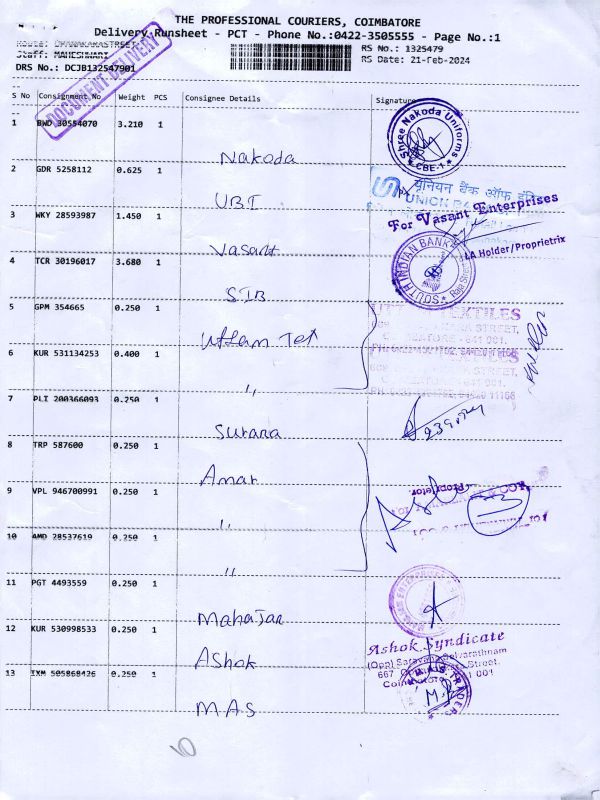 THE PROFESSIONAL COURIERS, COIMBATORE
Delivery Runsheet - PCT - Phone No.:0422-3505555 - Page No.:1
Staff: MAHESHWARI
RS No.: 1325479
DRS No.: DCJB132547901
RS Date: 21-Feb-2024
DOCUMENT DELIVERY
S No Consignment No Weight PCS Consignee Details Signature
1 BWD 30554070 3.210 1 Nakoda
Shree Nakoda Uniforms
CBE-1
2 GDR 5258112 0.625 1 UBI
यूनियन बैंक ऑफ
UNION
3 WKY 28593987 1.450 1 Vasant
For Vasant Enterprises
LA Holder/Proprietrix
4 TCR 30196017 3.680 1 SIB
SOUTH INDIAN BANK
5 GPM 354665 0.250 1 Uttam Tex
TEXTILES
STREET,
641 001.
6 KUR 531134253 0.400 1 "
STREET,
641 001.
7 PLI 200366093 0.250 1 Surana
8 TRP 587600 0.250 1 Amar
9 VPL 946700991 0.250 1 "
Proprietor.
10 AMD 28537619 0.250 1 "
11 PGT 4493559 0.250 1 Mahajan
12 KUR 530998533 0.250 1 Ashok
Ashok Syndicate
667,
Street,
13 IXM 505868426 0.250 1 MAS
TRADERS